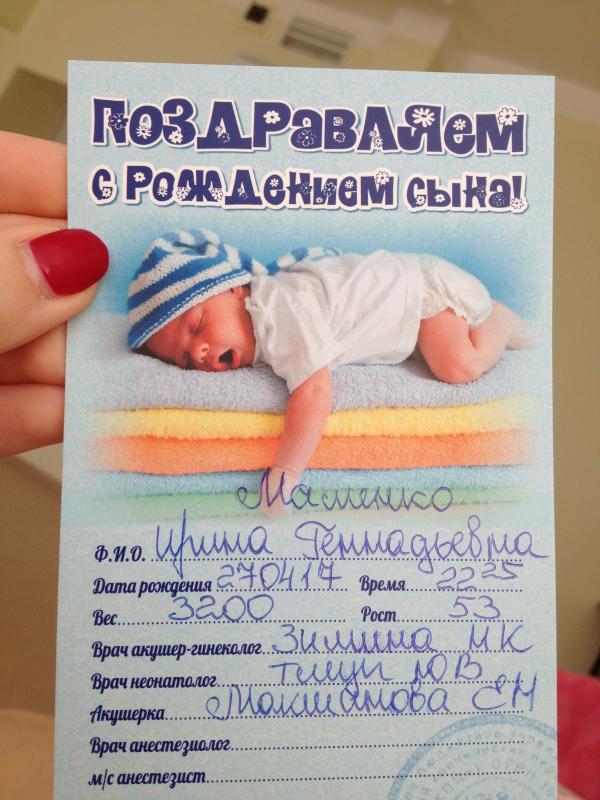 ПОЗДРАВЛЯЕМ
С РОЖДЕНИЕМ СЫНА!
Маменко
Ф.И.О. Ирина Геннадьевна
Дата рождения 270417 Время 22 25
Вес 3200 Рост 53
Врач акушер-гинеколог Зимина НК
Врач неонатолог ЮВ
Акушерка ЕН
Врач анестезиолог
м/с анестезист